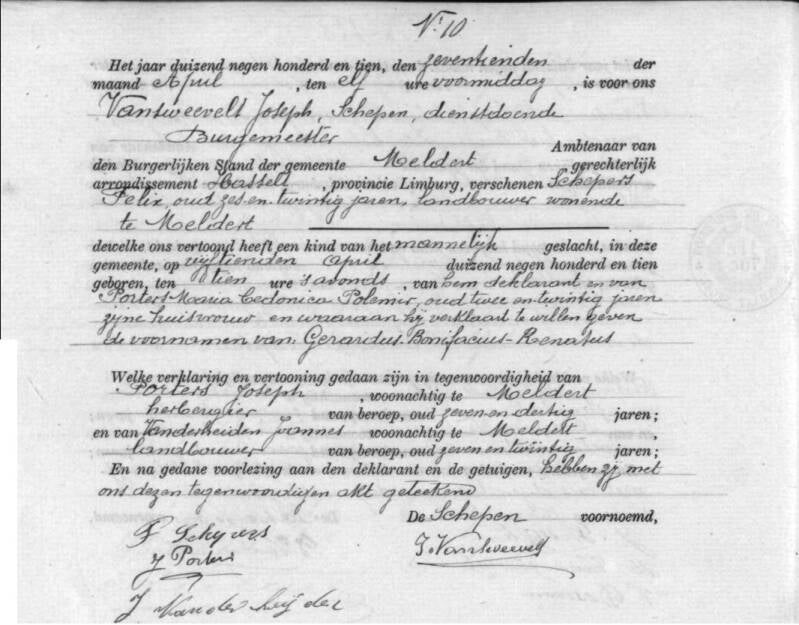 N.r 10
Het jaar duizend negen honderd en tien, den zeventienden der
maand April , ten elf ure voormiddag , is voor ons
Vansweevelt Joseph, Schepen, dienstdoende
Burgemeester
Ambtenaar van
den Burgerlijken Stand der gemeente Meldert gerechterlijk
arrondissement Hasselt , provincie Limburg, verschenen Schepers
Felix, oud zes en twintig jaren, landbouwer wonende
te Meldert
dewelke ons vertoond heeft een kind van het mannelijk geslacht, in deze
gemeente, op vijftienden april duizend negen honderd en tien
geboren, ten tien ure 's avonds , van hem deklarant en van
Porters Maria Ledonica Polemie, oud twee en twintig jaren
zijne huisvrouw en waaraan hij verklaart te willen geven
de voornamen van: Gerardus-Bonifacius-Renatus
Welke verklaring en vertooning gedaan zijn in tegenwoordigheid van
Porters Joseph , woonachtig te Meldert
herbergier van beroep, oud zeven en dertig jaren;
en van Vanderheiden Joannes woonachtig te Meldert ,
landbouwer van beroep, oud zeven en twintig jaren;
En na gedane voorlezing aan den deklarant en de getuigen, hebben zij met
ons dezen tegenwoordigen akt geteekend
De Schepen voornoemd,
F Schepers
J Porters
J. Vansweevelt
J Vanderheijden